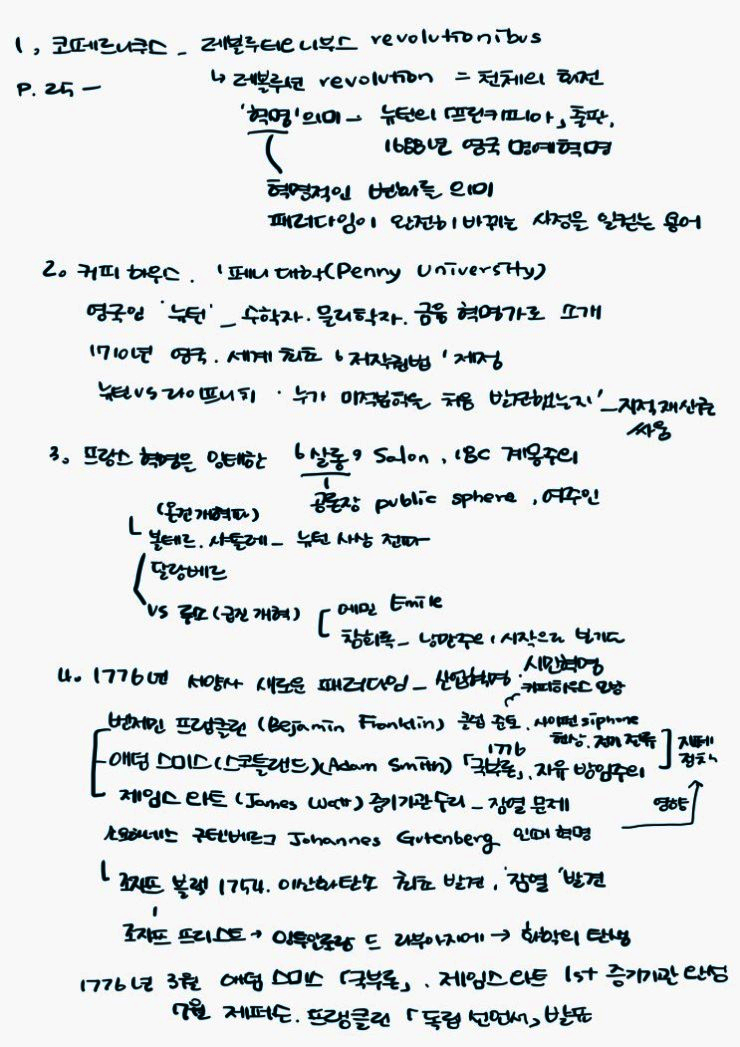 1, 코페르니쿠스 _ 레볼루티오니부스 revolutionibus
P. 25 —
↳ 레볼루션 revolution = 천체의 회전
'혁명'의미 — 뉴턴의 「프린키피아」 출판,
1688년 영국 명예혁명
혁명적인 변화를 의미
패러다임이 완전히 바뀌는 사정을 일컫는 용어
2. 커피 하우스. '페니 대학(Penny University)
영국인 '뉴턴' _ 수학자. 물리학자. 금융 혁명가로 소개
1710년 영국. 세계 최초 '저작권법' 제정
뉴턴 VS 라이프니치 · 누가 미적분학을 처음 발견했는지' _ 지적재산권
싸움
3. 프랑스 혁명을 잉태한 '살롱' Salon, 18C 계몽주의
공론장 public sphere, 여주인
(온건개혁파)
볼테르. 샤틀레 _ 뉴턴 사상 전파
달랑베르
VS 루소 (급진 개혁) 에밀 Emile
참회록 _ 낭만주의 시작으로 보기도
4. 1776년 서양사 새로운 패러다임 _ 산업혁명. 시민혁명
커피하우스 모방
벤저민 프랭클린 (Bejamin Franklin) 클럽 준토. 사이펀 siphone
현상. 전기 전류
애덤 스미스 (스코틀랜드)(Adam Smith) 「국부론」, 자유 방임주의
1776
지폐
제임스 와트 (James Watt) 증기기관 수리 _ 잠열 문제
영향
요하네스 구텐베르그 Johannes Gutenberg 인쇄 혁명
조지프 블랙 1754. 이산화탄소 최초 발견, '잠열' 발견
조지프 프리스트 → 앙투안로랑 드 라부아지에 → 화학의 탄생
1776년 3월 애덤 스미스 「국부론」. 제임스 와트 1st 증기기관 완성
7월 제퍼슨. 프랭클린 「독립 선언서」 발표